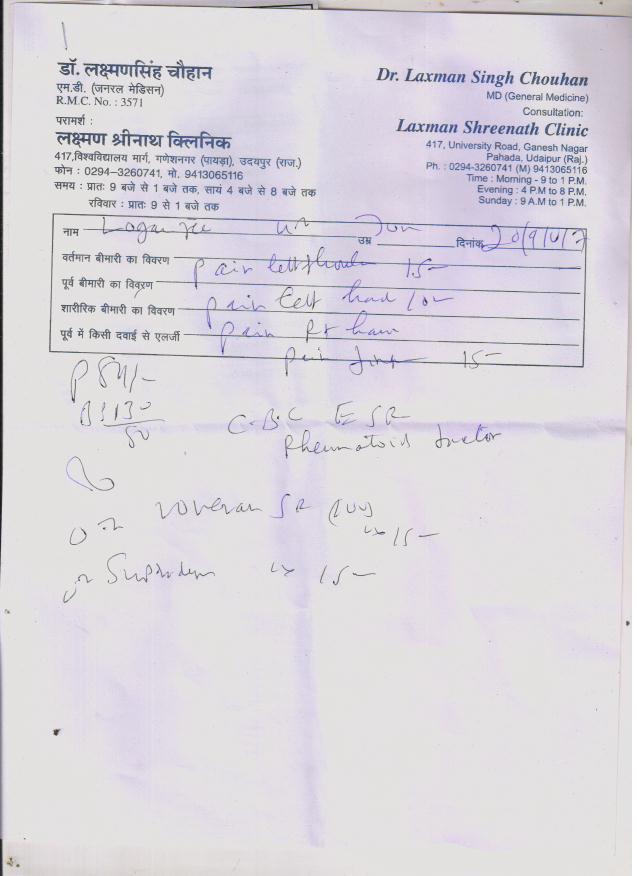 डॉ. लक्ष्मणसिंह चौहान
एम.डी. (जनरल मेडिसन)
R.M.C. No. : 3571
परामर्श :
लक्ष्मण श्रीनाथ क्लिनिक
417,विश्वविद्यालय मार्ग, गणेशनगर (पायड़ा), उदयपुर (राज.)
फोन : 0294-3260741, मो. 9413065116
समय : प्रातः 9 बजे से 1 बजे तक, सायं 4 बजे से 8 बजे तक
रविवार : प्रातः 9 से 1 बजे तक
Dr. Laxman Singh Chouhan
MD (General Medicine)
Consultation:
Laxman Shreenath Clinic
417, University Road, Ganesh Nagar
Pahada, Udaipur (Raj.)
Ph. : 0294-3260741 (M) 9413065116
Time : Morning - 9 to 1 P.M.
Evening : 4 P.M to 8 P.M.
Sunday : 9 A.M to 1 P.M.
नाम उम्र दिनांक 20/9/07
वर्तमान बीमारी का विवरण pain left 15-
पूर्व बीमारी का विवरण pain left
शारीरिक बीमारी का विवरण pain Rt
पूर्व में किसी दवाई से एलर्जी pain 15-
P 84/-
130/80
C.B.C ESR
Rheumatoid factor
Voveran SR (100)
15-
15-